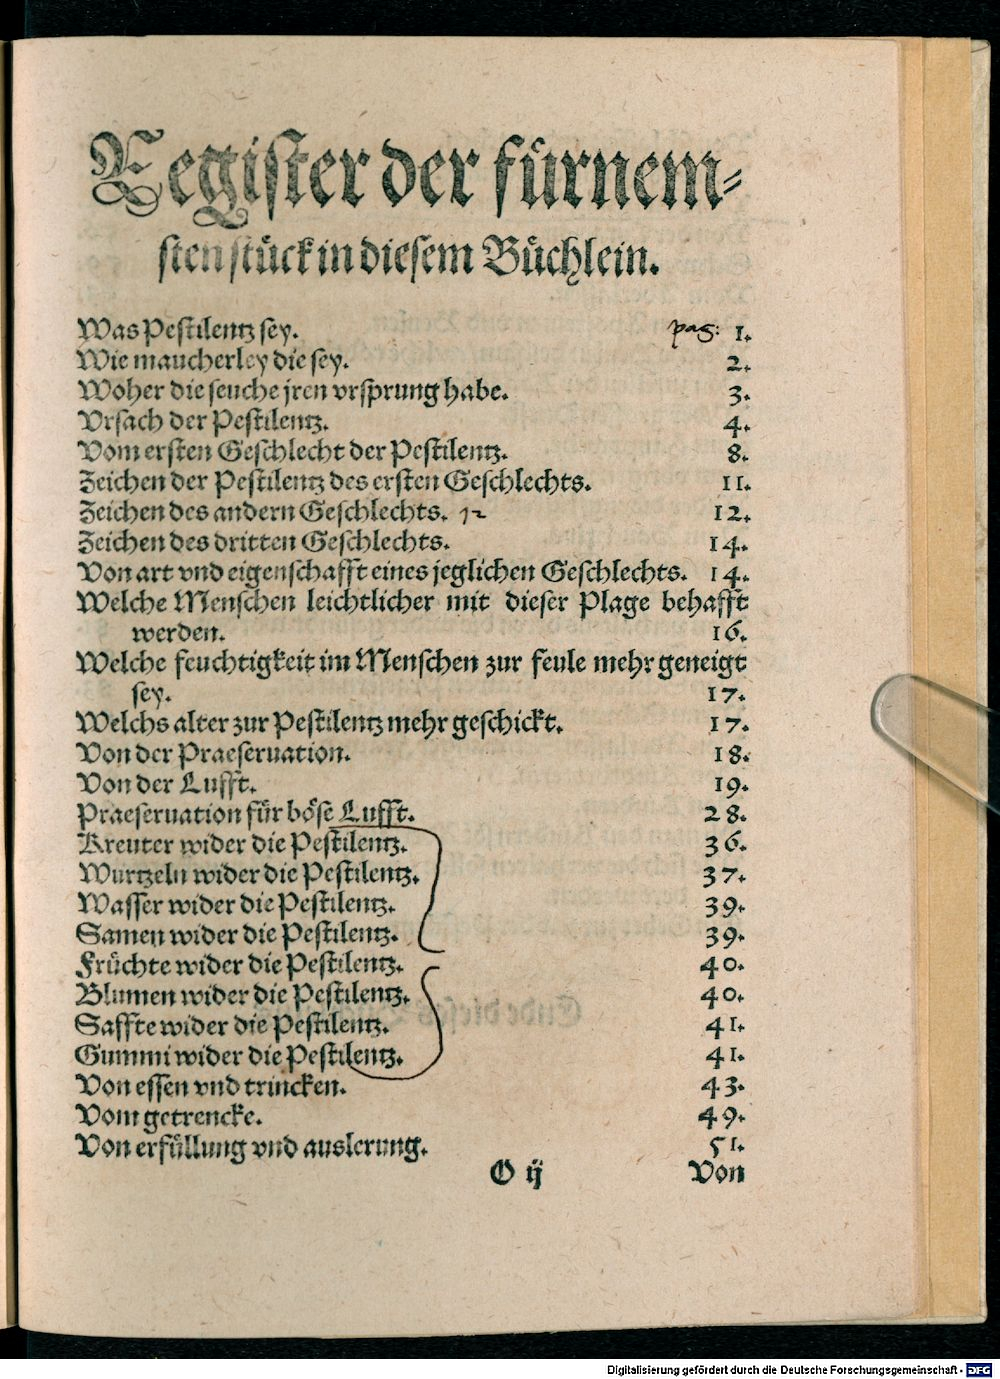 Register der fürnem-
sten stück in diesem Büchlein.
Was Pestilentz sey. pag: 1.
Wie maucherley die sey. 2.
Woher die seuche jren vrsprung habe. 3.
Vrsach der Pestilentz. 4.
Vom ersten Geschlecht der Pestilentz. 8.
Zeichen der Pestilentz des ersten Geschlechts. 11.
Zeichen des andern Geschlechts. 12 12.
Zeichen des dritten Geschlechts. 14.
Von art vnd eigenschafft eines jeglichen Geschlechts. 14.
Welche Menschen leichtlicher mit dieser Plage behafft
werden. 16.
Welche feuchtigkeit im Menschen zur feule mehr geneigt
sey. 17.
Welchs alter zur Pestilentz mehr geschickt. 17.
Von der Praeseruation. 18.
Von der Lufft. 19.
Praeseruation für böse Lufft. 28.
Kreuter wider die Pestilentz. 36.
Wurtzeln wider die Pestilentz. 37.
Wasser wider die Pestilentz. 39.
Samen wider die Pestilentz. 39.
Früchte wider die Pestilentz. 40.
Blumen wider die Pestilentz. 40.
Saffte wider die Pestilentz. 41.
Gummi wider die Pestilentz. 41.
Von essen vnd trincken. 43.
Vom getrencke. 49.
Von erfüllung vnd auslerung. 51.
O ij Von
Digitalisierung gefördert durch die Deutsche Forschungsgemeinschaft - DFG